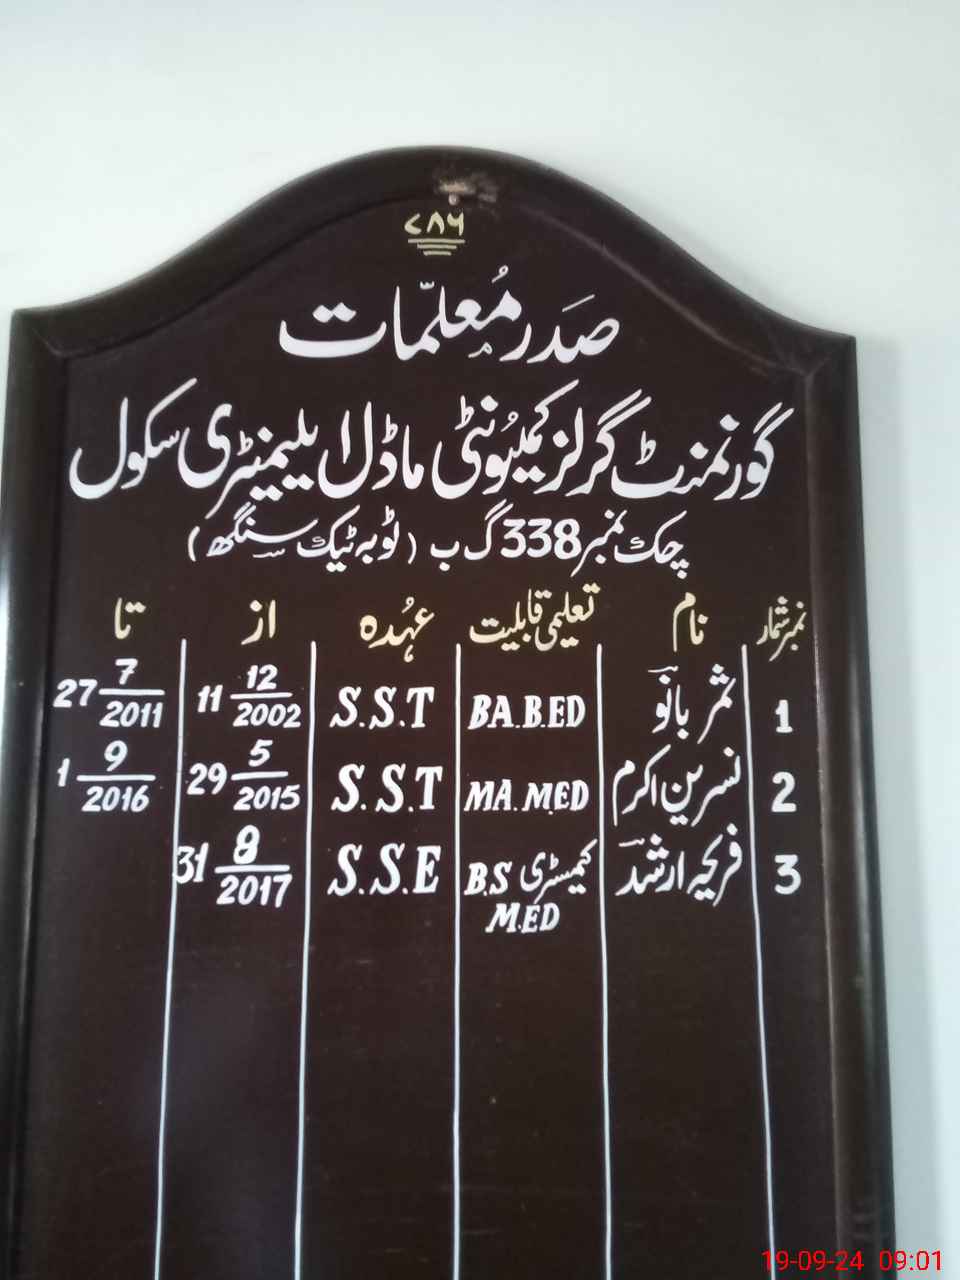 ۷۸۶
صدر معلمات
گورنمنٹ گرلز کمیونٹی ماڈل ایلیمنٹری سکول
چک نمبر 338 گ ب (ٹوبہ ٹیک سنگھ)
نمبر شمار نام تعلیمی قابلیت عہدہ از تا
1 ثمر بانو BA.B.ED S.S.T 11 12/2002 27 7/2011
2 نسرین اکرم MA.MED S.S.T 29 5/2015 1 9/2016
3 فریحہ ارشد B.S کیمسٹری S.S.E 31 8/2017
M.ED
19-09-24 09:01